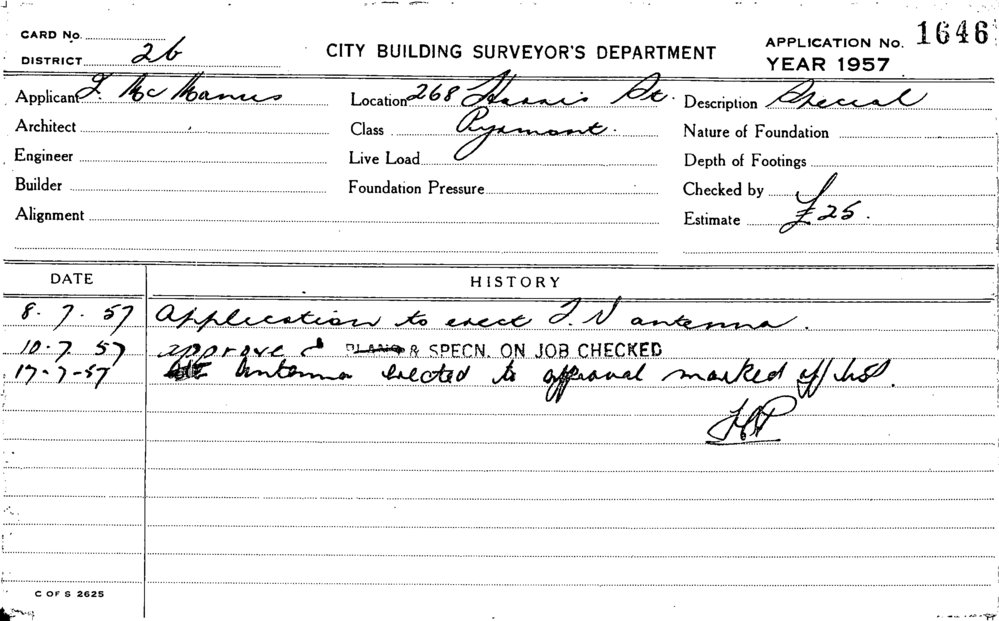 CARD No.
DISTRICT 26
CITY BUILDING SURVEYOR'S DEPARTMENT
APPLICATION No. 1646
YEAR 1957
Applicant J. McManus
Location 268 Harris St.
Description Special
Architect
Class Pyrmont.
Nature of Foundation
Engineer
Live Load
Depth of Footings
Builder
Foundation Pressure
Checked by
Alignment
Estimate £25.
DATE HISTORY
8.7.57 Application to erect T.V antenna.
10.7.57 approved & SPECN. ON JOB CHECKED
17-7-57 Antenna erected to approval marked off
C OF S 2625